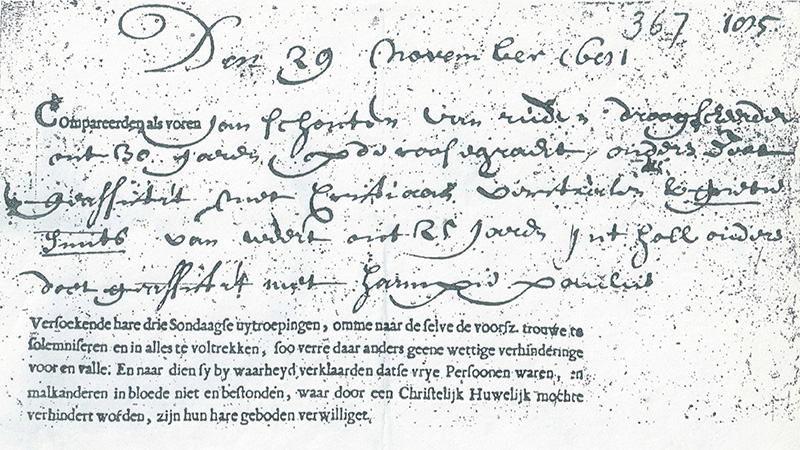 367 1015
Den 29 November 1651
Compareerden als voren Jan Schouten van droogscheerder
out 30 Jaren, op de roosegracht, ouders doot
geassisteert met Cristiaen &
van weert out 25 Jaren Int hol ouders
doot geassisteert met paulus
Versoekende hare drie Sondaagse uytroepingen, omme naar de selve de voorsz. trouwe te
solemniseren en in alles te voltrekken, soo verre daar anders geene wettige verhinderinge
voor en valle: En naar dien sy by waarheyd verklaarden datse vrye Persoonen waren, en
malkanderen in bloede niet en bestonden, waar door een Christelijk Huwelijk mochte
verhindert worden, zijn hun hare geboden verwilliget.